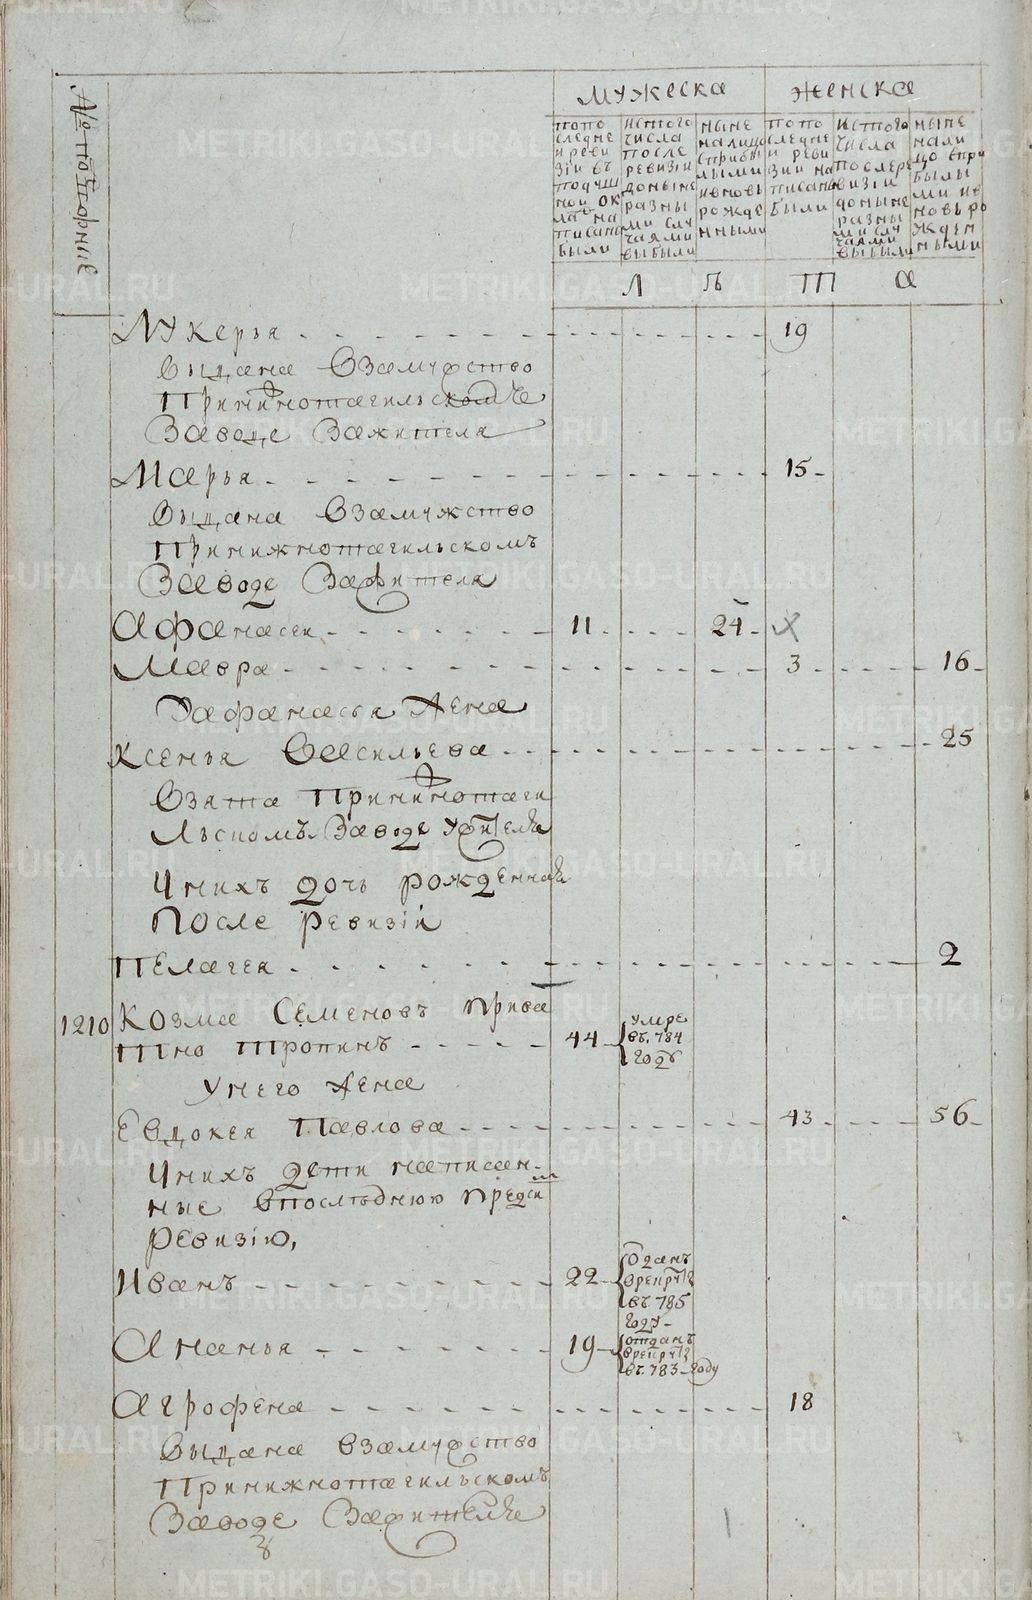 № по порядку
мужеска
женска
попо
следне
и реви
зіи въ
подуш
ной ок
ладъ на
писаны
были
истого
числа
после
ревизіи
доныне
разны
ми слу
чаями
выбыли
ныне
налицо
сприбы
лыми
ивновь
рожде
нными
попо
следне
и реви
зіи на
писаны
были
истого
числа
послере
визіи
доныне
разны
ми слу
чаями
выбыли
ныне
нали
цо спри
былы
ми ив
новь ро
жден
ными
Л ѣ т а
Лукерья 19
выдана взамужство
Принижнотагильскомже
Заводе Зажителя
Марья 15
выдана взамужство
Принижнотагильскомъ
Заводе Зажителя
Афанасеи 11 24 X
Мавра 3 16
Уафанасья Жена
Ксенья Васильева 25
Взята Принижнотаги
льскомъ Заводе ужителя
Унихъ дочь рожденная
После ревизіи
Пелагея 2
1210 Козма Семеновъ прива
тно Тропинъ 44 умре
въ 784
годе
Унего Жена
Евдокея Павлова 43 56
Унихъ дети написан
ные впоследнюю предъ сим
ревизію,
Иванъ 22 Оданъ
врекруты
въ 785
году
Ананья 19 отданъ
врекруты
въ 783 году
Агрофена 18
выдана взамужство
Принижнотагильскомъ
Заводе Зажителя